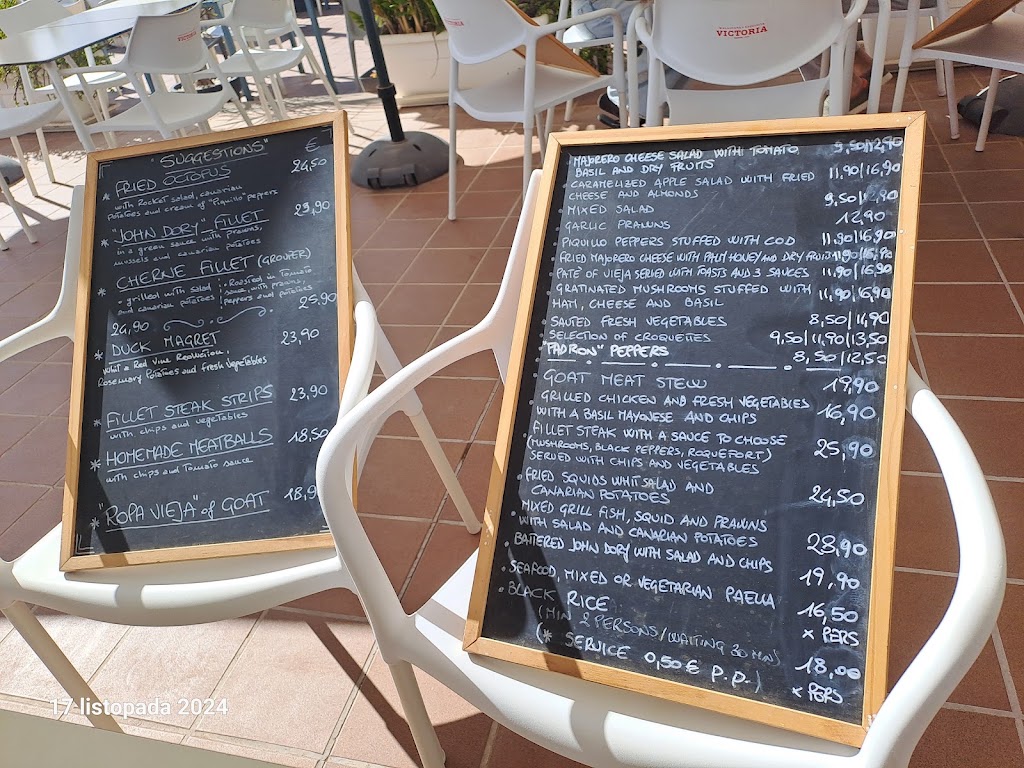 VICTORIA
VICTORIA
"SUGGESTIONS" €
* FRIED OCTOPUS 24,50
with Rocket salad, canarian
potatoes and cream of "Piquillo" peppers
* "JOHN DORY" FILLET 23,90
in a green sauce with prawns,
mussels and canarian potatoes
* CHERNE FILLET (GROUPER)
- grilled with salad
and canarian potatoes
- Roasted in Tomato
sauce, with prawns,
peppers and potatoes
24,90 25,90
* DUCK MAGRET 23,90
Whit a Red Wine Reduction,
Rosemary Potatoes and fresh vegetables
* FILLET STEAK STRIPS 23,90
with chips and vegetables
* HOMEMADE MEATBALLS 18,50
with chips and Tomato sauce
* "ROPA VIEJA" of GOAT 18,9
MAJORERO CHEESE SALAD WITH TOMATO 9,50/12,90
BASIL AND DRY FRUITS
CARAMELIZED APPLE SALAD WITH FRIED 11,90/16,90
CHEESE AND ALMONDS
MIXED SALAD 9,50/12,90
GARLIC PRAWNS 12,90
PIQUILLO PEPPERS STUFFED WITH COD 11,90/16,90
FRIED MAJORERO CHEESE WITH PALM HONEY AND DRY FRUITS 11,90/16,90
PATÉ OF VIEJA SERVED WITH TOASTS AND 3 SAUCES 11,90/16,90
GRATINATED MUSHROOMS STUFFED WITH 11,90/16,90
HAM, CHEESE AND BASIL
SAUTED FRESH VEGETABLES 8,50/11,90
SELECTION OF CROQUETTES 9,50/11,90/13,50
"PADRON" PEPPERS 8,50/12,50
GOAT MEAT STEW 19,90
GRILLED CHICKEN AND FRESH VEGETABLES
WITH A BASIL MAYONESE AND CHIPS 16,90
FILLET STEAK WITH A SAUCE TO CHOOSE
(MUSHROOMS, BLACK PEPPERS, ROQUEFORT) 25,90
SERVED WITH CHIPS AND VEGETABLES
FRIED SQUIDS WHIT SALAD AND
CANARIAN POTATOES 24,50
MIXED GRILL FISH, SQUID AND PRAWNS
WITH SALAD AND CANARIAN POTATOES 28,90
BATTERED JOHN DORY WITH SALAD AND CHIPS 19,90
SEAFOOD, MIXED OR VEGETARIAN PAELLA 16,50
x PERS
BLACK RICE 18,00
x PERS
(MIN 2 PERSONS/WAITING 30 MIN)
(* SERVICE 0,50 € P.P.)
17 listopada 2024